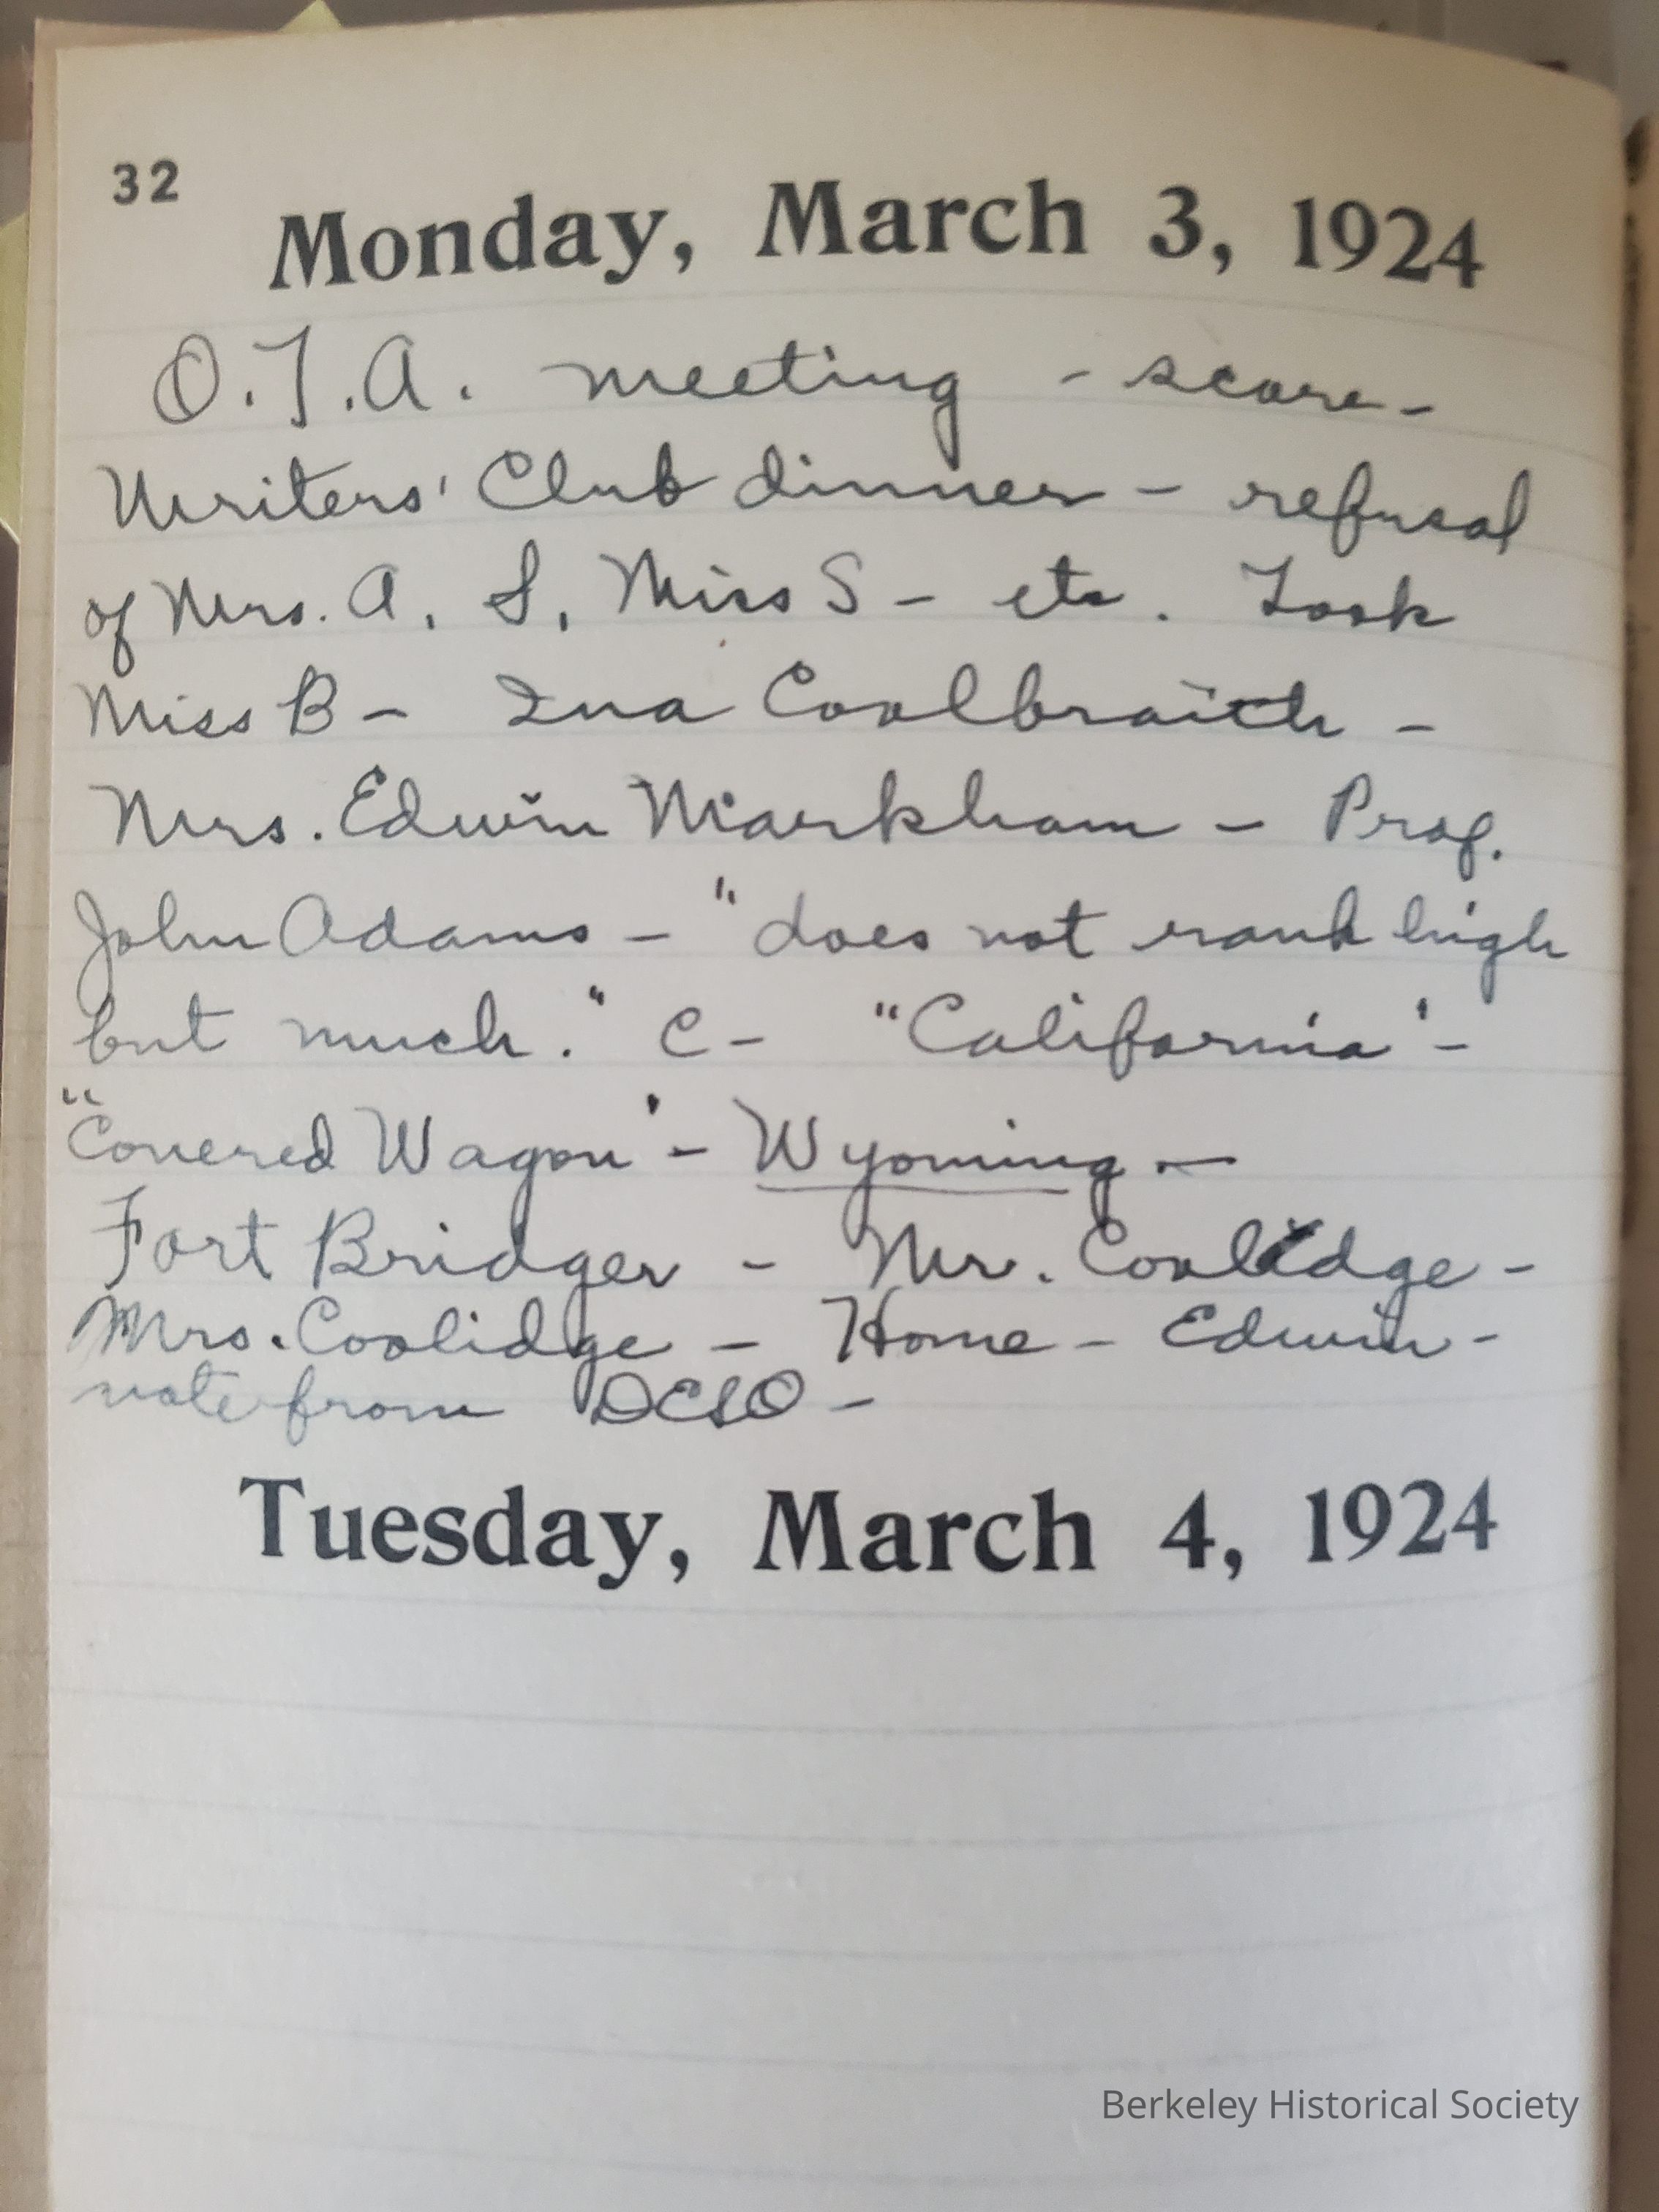 32
Monday, March 3, 1924
O.T.A. meeting - score -
Writers' Club dinner - refusal
of Mrs. A, S, Miss S - etc. Took
Miss B - Ina Coolbraith -
Mrs. Edwin Markham - Prof.
John Adams - "does not rank high
but much." C - "California' -
"Covered Wagon' - Wyoming -
Fort Bridger - Mr. Coolidge -
Mrs. Coolidge - Home - Edwin -
note from -
Tuesday, March 4, 1924
Berkeley Historical Society